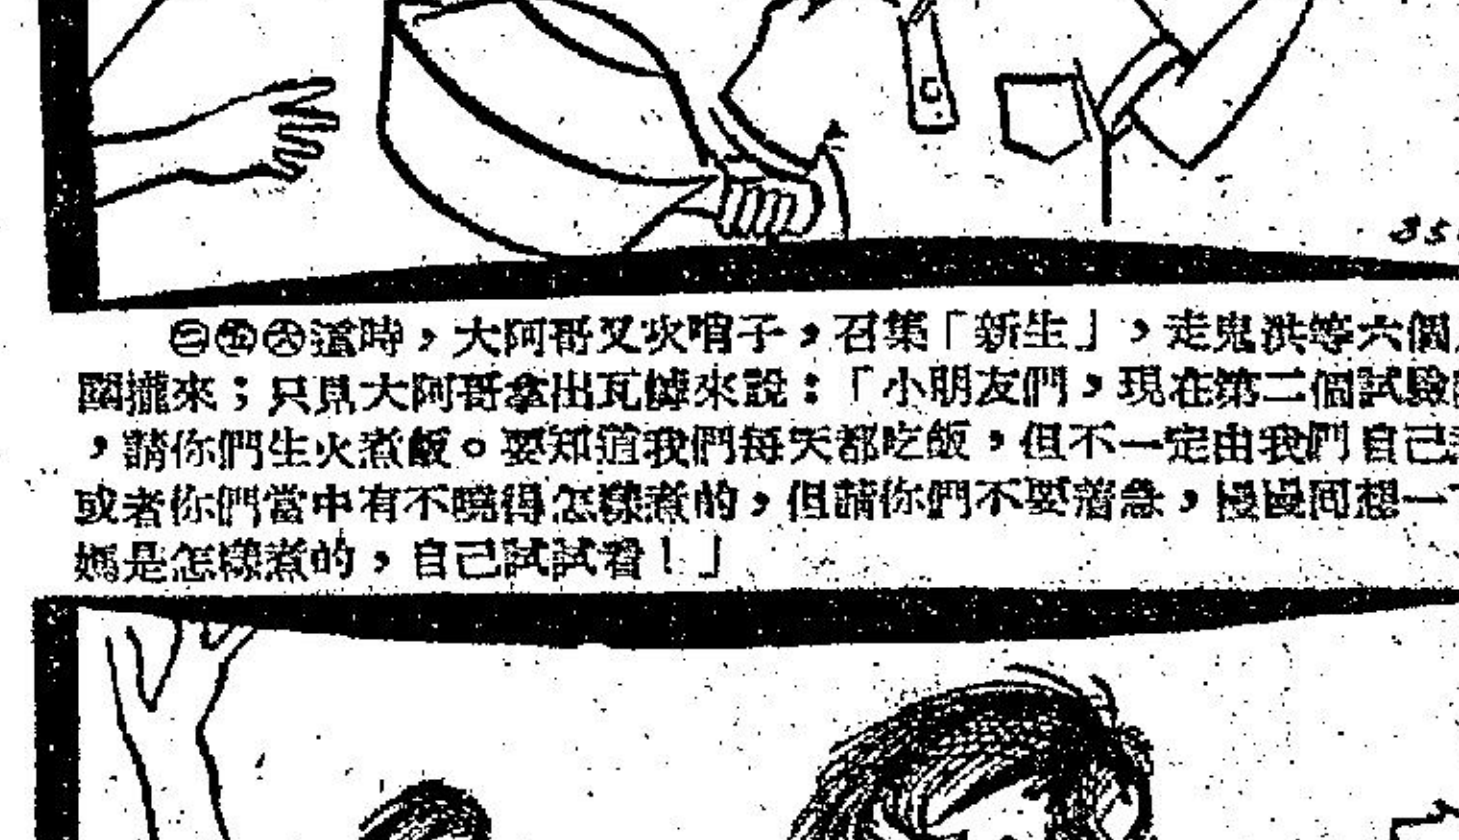 356
㊂㊄㊅這時，大阿哥又吹哨子，召集「新生」，走鬼洪等六個
圍攏來；只見大阿哥拿出瓦罉來說：「小朋友們，現在第二個試驗
，請你們生火煮飯。要知道我們每天都吃飯，但不一定由我們自己
或者你們當中有不曉得怎樣煮的，但請你們不要着急，慢慢回想一下
媽是怎樣煮的，自己試試看！」